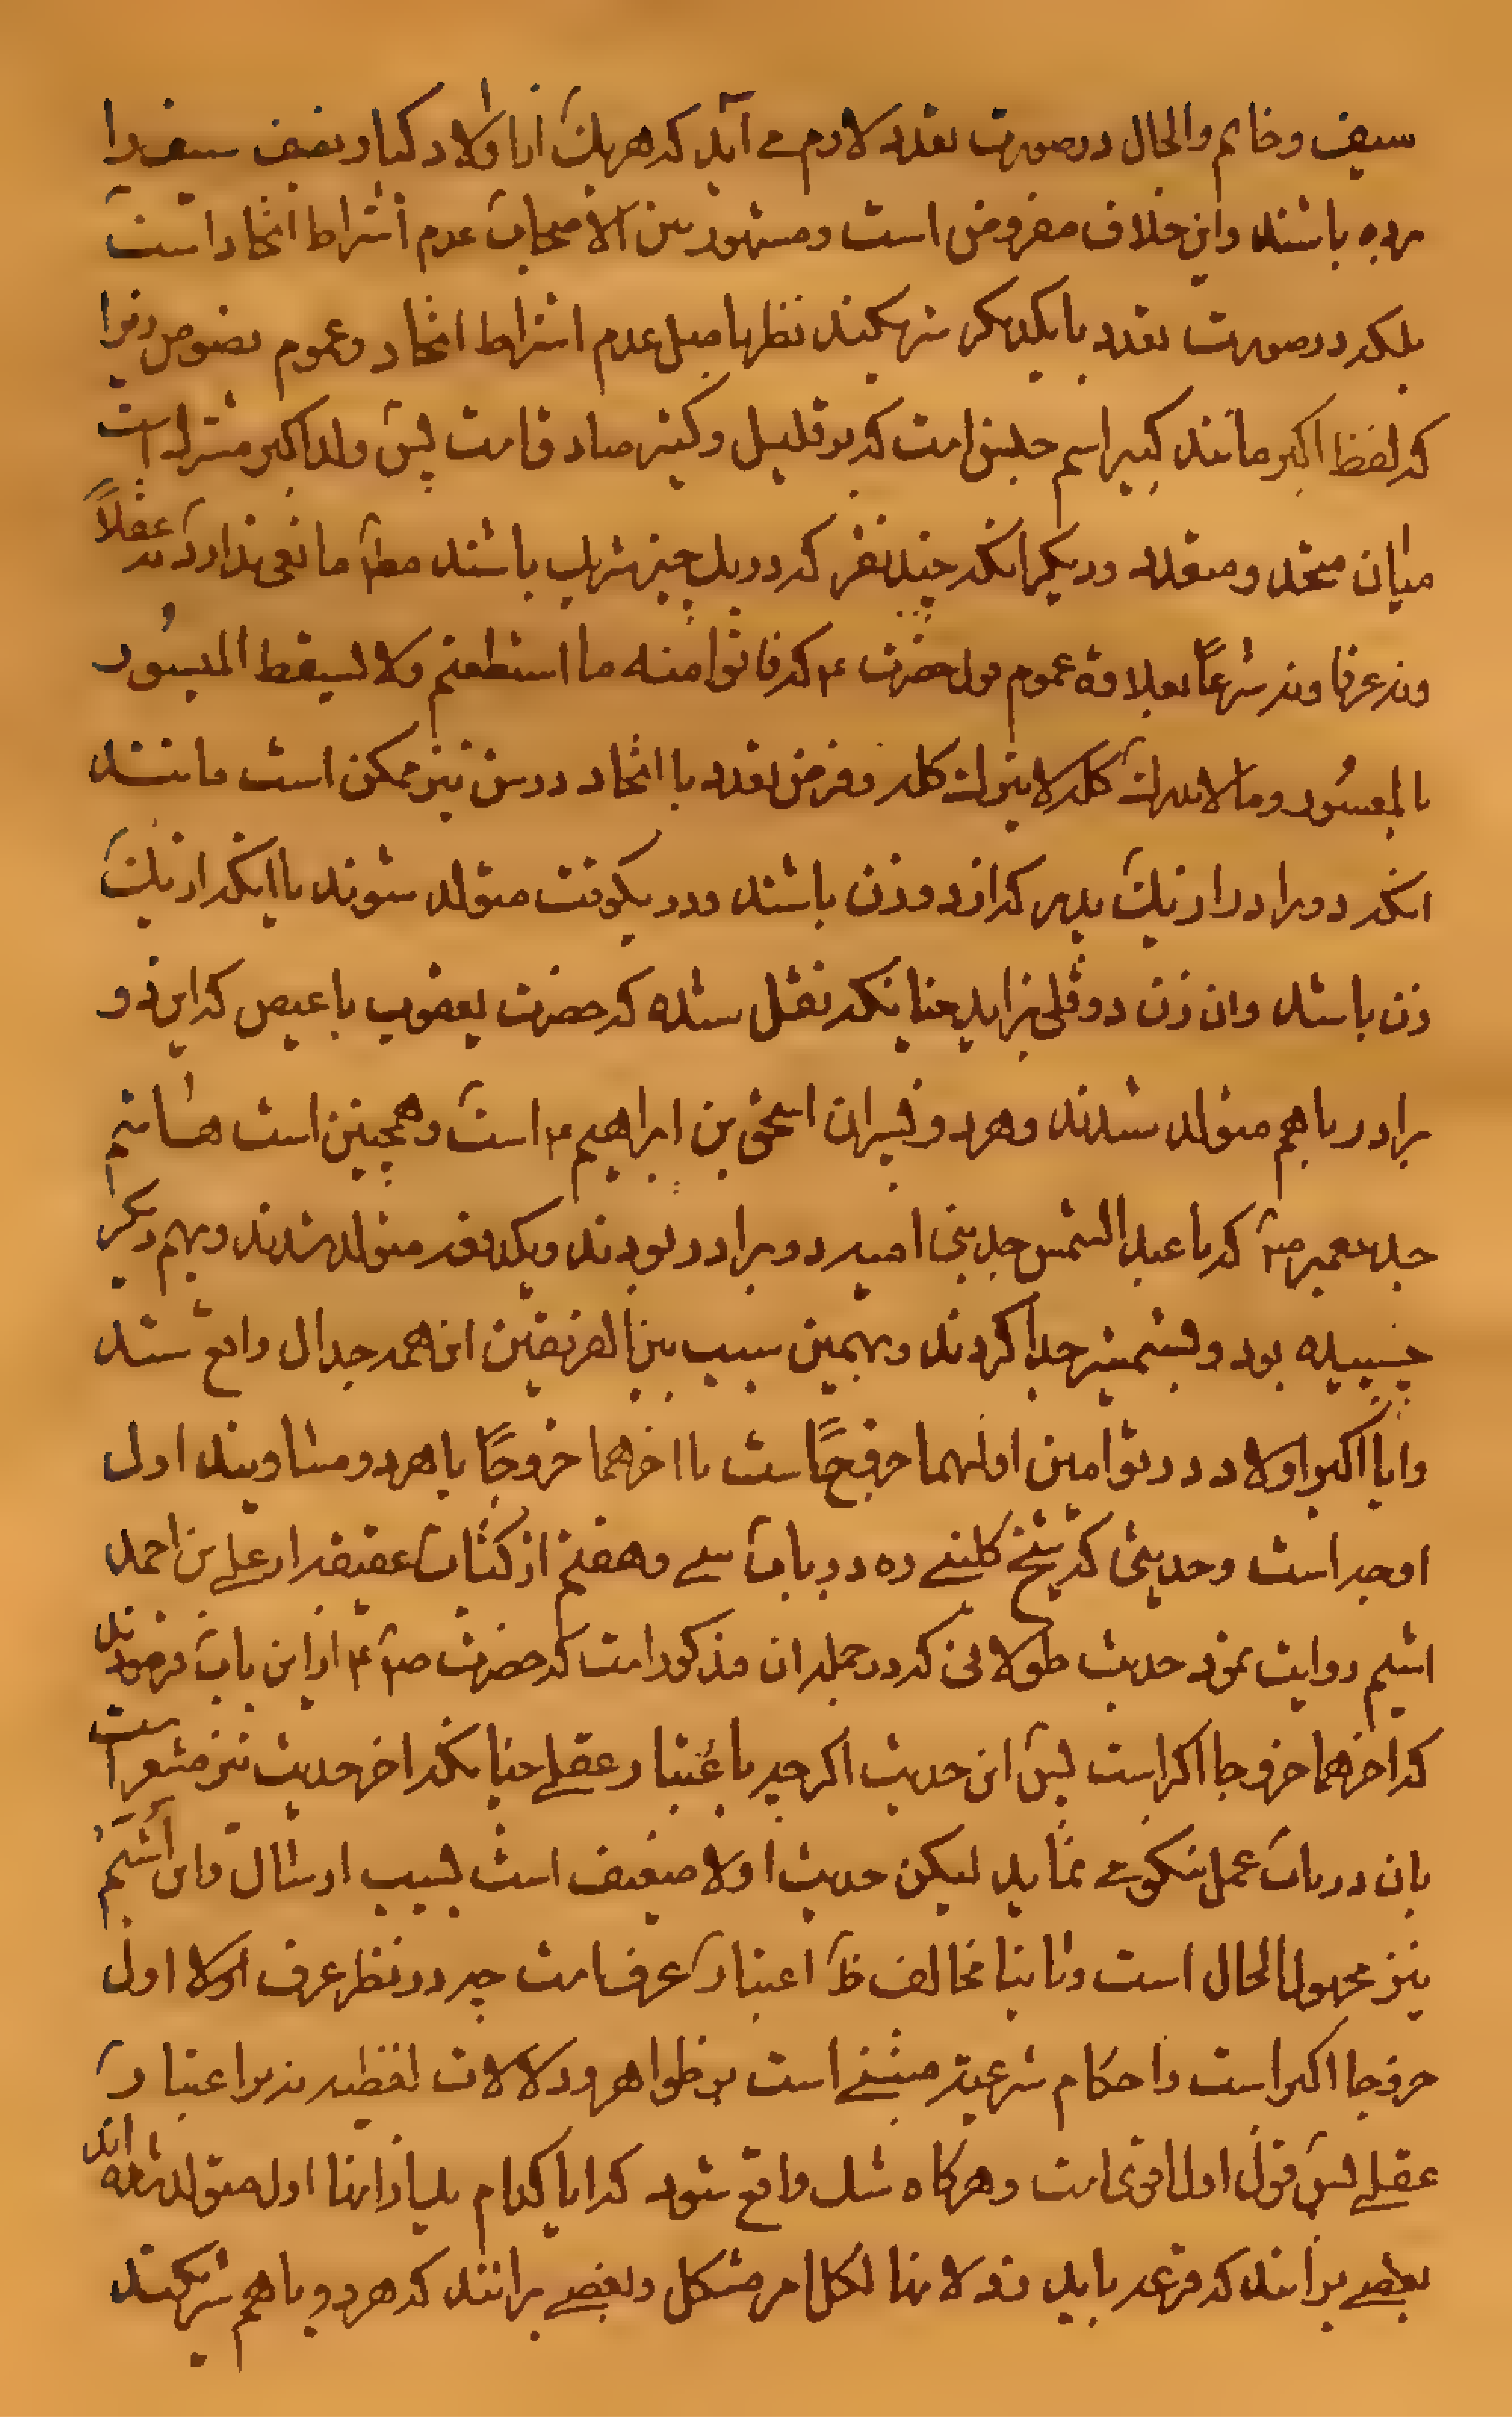 سیف و خاتم و الحال در صورت تعدد لازم می آید که هر یک از اولاد کبار نصف سیف را
برده باشند و این خلاف مفروض است و مشهور بین الاصحاب عدم اشتراط اتحاد است
بلکه در صورت تعدد با یکدیگر شریکند نظر باصل عدم اشتراط اتحاد و عموم نصوص زیرا
که لفظ اکبر مانند کبیر اسم جنس است که بر قلیل و کثیر صادق است پس ولد اکبر مشترک است
میان متحد و متعدد و دیگر آنکه چند نفر که در یک چیز شریک باشند مط مانعی ندارد نه عقلاً
و نه عرفا و نه شرعاً بعلاوه عموم قول حضرت ع که فاتوا منه ما استطعتم ولا یسقط المیسُور
بالمعسُور و ما لا یدرک کله لا یترک کله و فرض تعدد با اتحاد در سن نیز ممکن است مانند
آنکه دو برادر از یک پدر که از دو زن باشند و در یکوقت متولد شوند یا اینکه از یک
زن باشد و آن زن دوقلی بزاید چنانکه نقل شده که حضرت یعقوب با عیص که این دو
برادر با هم متولد شدند و هر دو پسران اسحق بن ابراهیم ع است و همچنین است هاشم
جد پیغمبر ص که با عبد الشمس جد بنی امیه دو برادر بودند و یکدفعه متولد شدند و بهم دیگر
چسبیده بود و بشمشیر جدا کردند و بهمین سبب بین الفریقین این همه جدال واقع شد
و آیا اکبر اولاد در توامین اولهما خروجاً است یا اخرهما خروجًا یا هر دو مساویند اول
اوجه است و حدیثی که شیخ کلینی ره در باب سی و هفتم از کتاب عقیقه از علی بن احمد
اشیم روایت نمود حدیث طولانی که در جمله آن مذکور است که حضرت ص ع از این باب فرمودند
که اخرهما خروجا اکبر است پس این حدیث اگر چه باعتبار عقلی چنانکه اخر حدیث نیز مشعر است
بان در باب عمل نیکو می نماید لیکن حدیث اولا ضعیف است بسبب ارسال و ابن اشیم
نیز مجهول الحال است و ثانیا مخالف ظ اعتبار عرف است چه در نظر عرف اولا اول
خروجا اکبر است و احکام شرعیه مبتنی است بر ظواهر و دلالات لفظیه نه بر اعتبار
عقلی پس قول اول اقوی است و هرگاه شک واقع شود که ایا کدام یک از اینها اول متولد شده اند
بعضی برآنند که قرعه باید زد لانها لکل امر مشکل و بعضی برانند که هر دو با هم شریکند